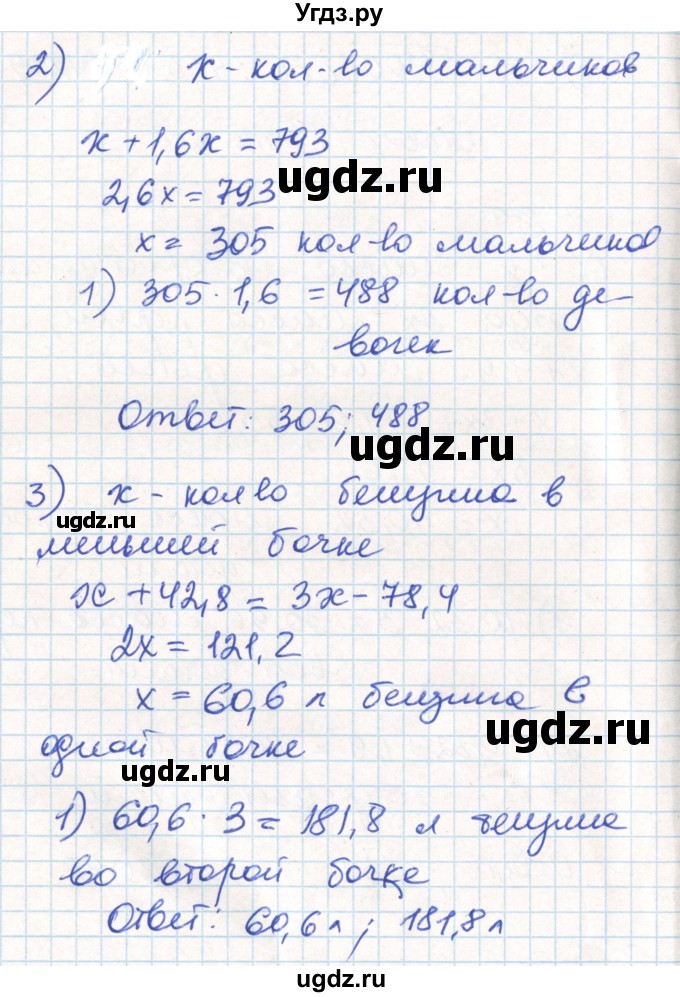 Угдз.ру
2) x - кол-во мальчиков
x + 1,6x = 793
ugdz.ru
2,6x = 793
x = 305 кол-во мальчиков
1) 305 · 1,6 = 488 кол-во де-
вочек
Ответ: 305; 488
ugdz.ru
3) x - кол во бензина в
ugdz.ru
меньшей бочке
x + 42,8 = 3x - 78,4
2x = 121,2
x = 60,6 л бензина в
ugdz.ru
одной бочке
ugdz.ru
1) 60,6 · 3 = 181,8 л бензина
во второй бочке
Ответ: 60,6 л; 181,8 л
ugdz.ru